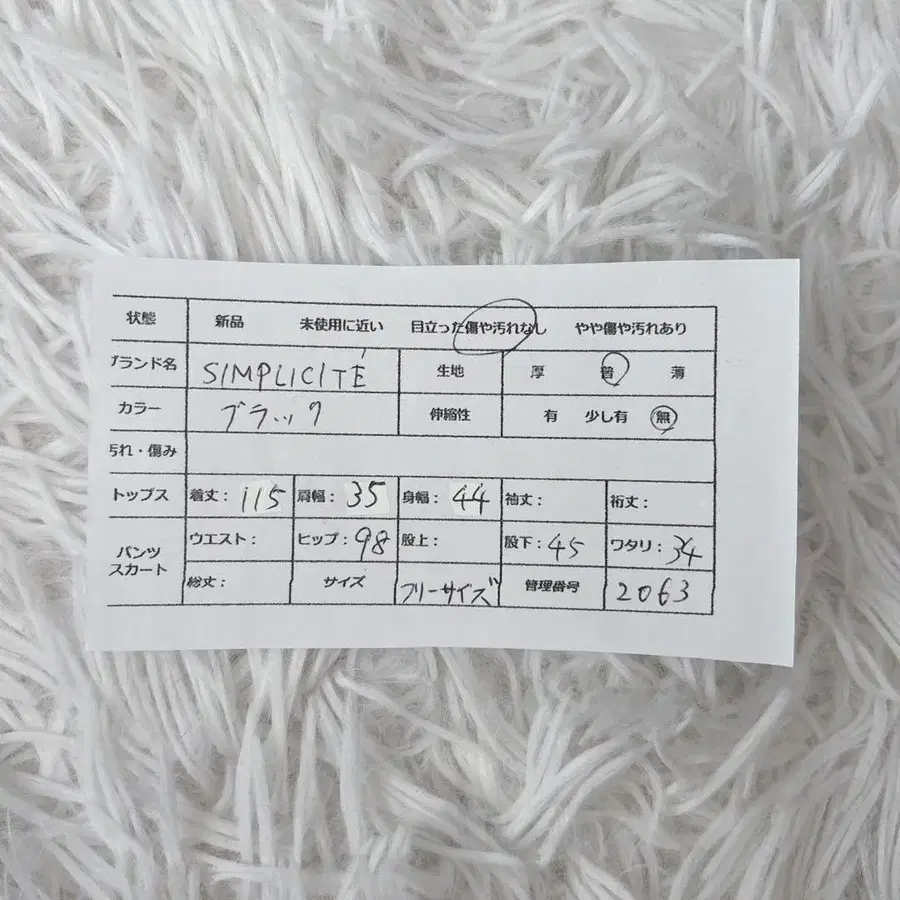 状態 新品 未使用に近い 目立った傷や汚れなし やや傷や汚れあり
ブランド名 SIMPLICITÉ 生地 厚 普 薄
カラー ブラック 伸縮性 有 少し有 無
汚れ・傷み
トップス 着丈: 115 肩幅: 35 身幅: 44 袖丈: 裄丈:
パンツ スカート ウエスト: ヒップ: 98 股上: 股下: 45 ワタリ: 34
総丈: サイズ フリーサイズ 管理番号 2063